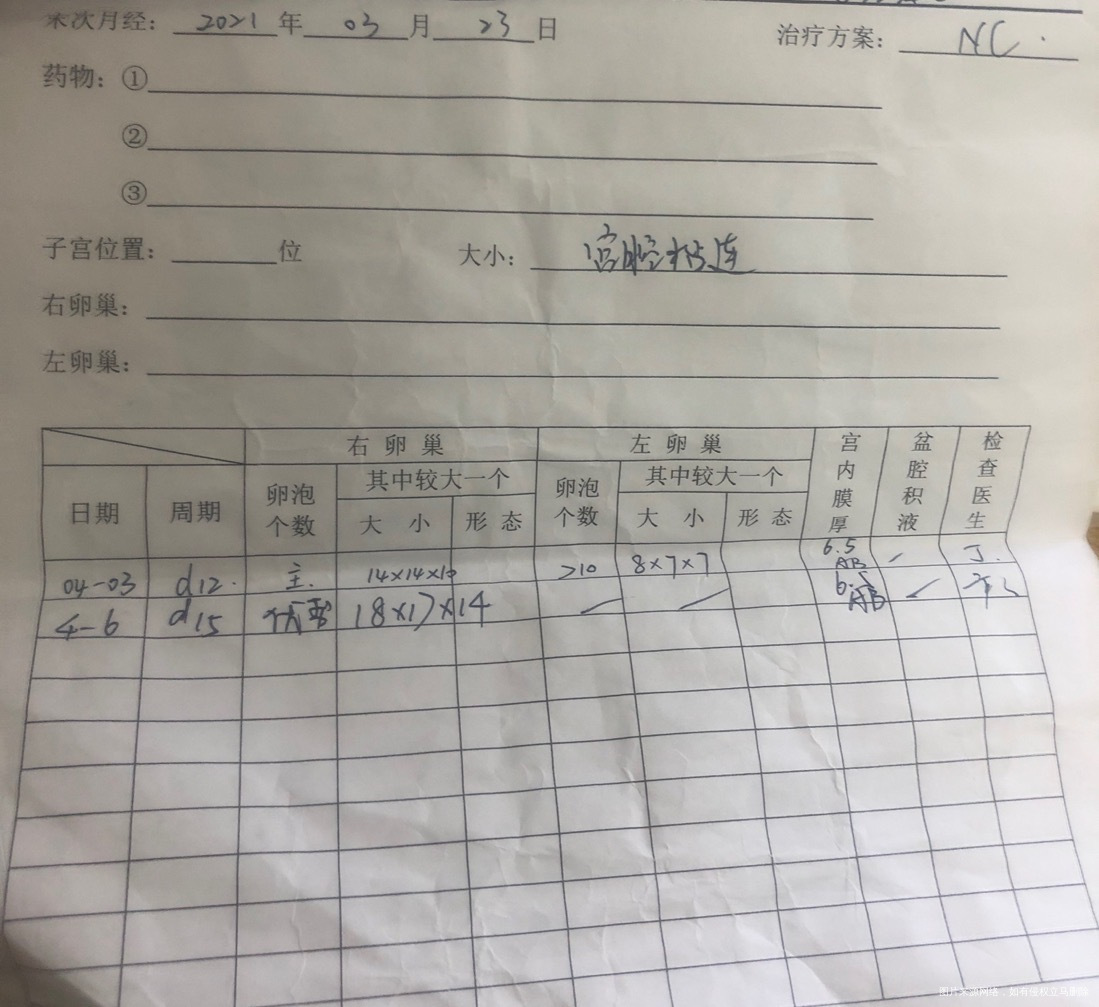 末次月经: 2021 年 03 月 23 日 治疗方案: NC
药物: ①
②
③
子宫位置: 位 大小: 宫腔粘连
右卵巢:
左卵巢:
右卵巢 左卵巢 宫内膜厚 盆腔积液 检查医生
日期 周期 卵泡个数 其中较大一个 卵泡个数 其中较大一个
大小 形态 大小 形态
04-03 d12. 主. 14×14×10 >10 8×7×7 6.5 AB
4-6 d15 优势 18×17×14 AB
图片来源网络,如有侵权立马删除